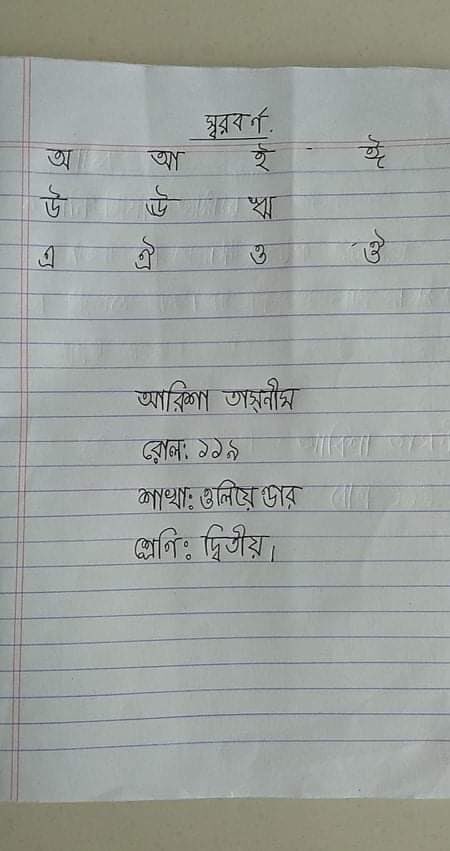 স্বরবর্ণ.
অ আ ই ঈ
উ ঊ ঋ
এ ঐ ও ঔ
আরিশা তাস্নীম
রোল: ১১৯
শাখা: ওলিয়েন্ডার
শ্রেণি: দ্বিতীয়।